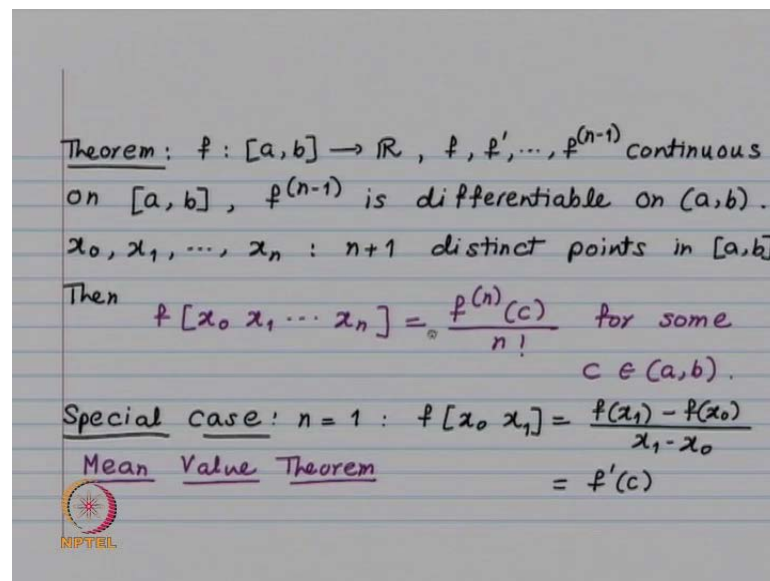 Theorem: f : [a,b] → ℝ, f, f', ..., f^(n-1) continuous
on [a,b], f^(n-1) is differentiable on (a,b).
x₀, x₁, ..., xₙ : n+1 distinct points in [a,b]
Then f[x₀ x₁ ... xₙ] = f^(n)(c)/n! for some
c ∈ (a,b).
Special case: n = 1 : f[x₀ x₁] = (f(x₁) - f(x₀))/(x₁ - x₀)
Mean Value Theorem = f'(c)
NPTEL